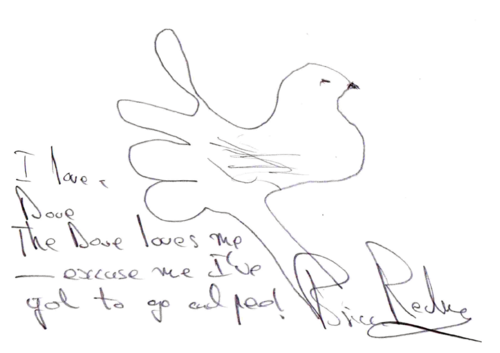 I love a
Dove
The Dove loves me
— excuse me I've
got to go and